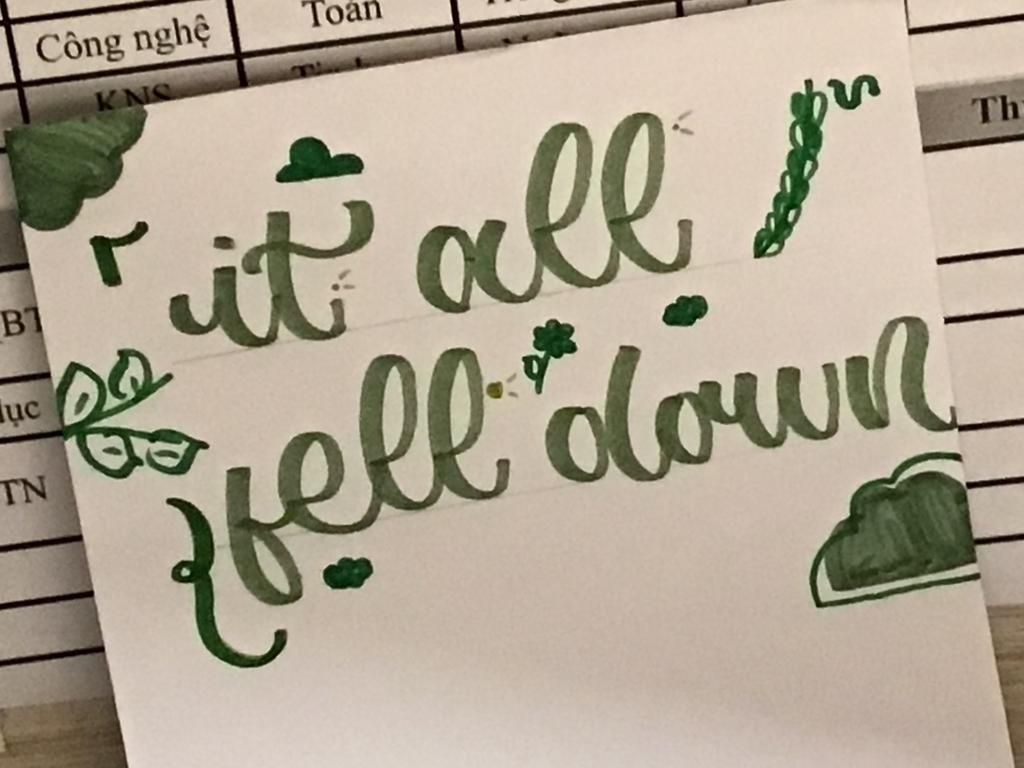 Công nghệ Toán
KNS
Th
BT
lục
TN
it all
fell down